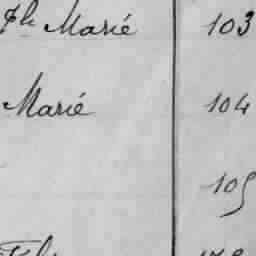 Marié 103
Marié 104
105